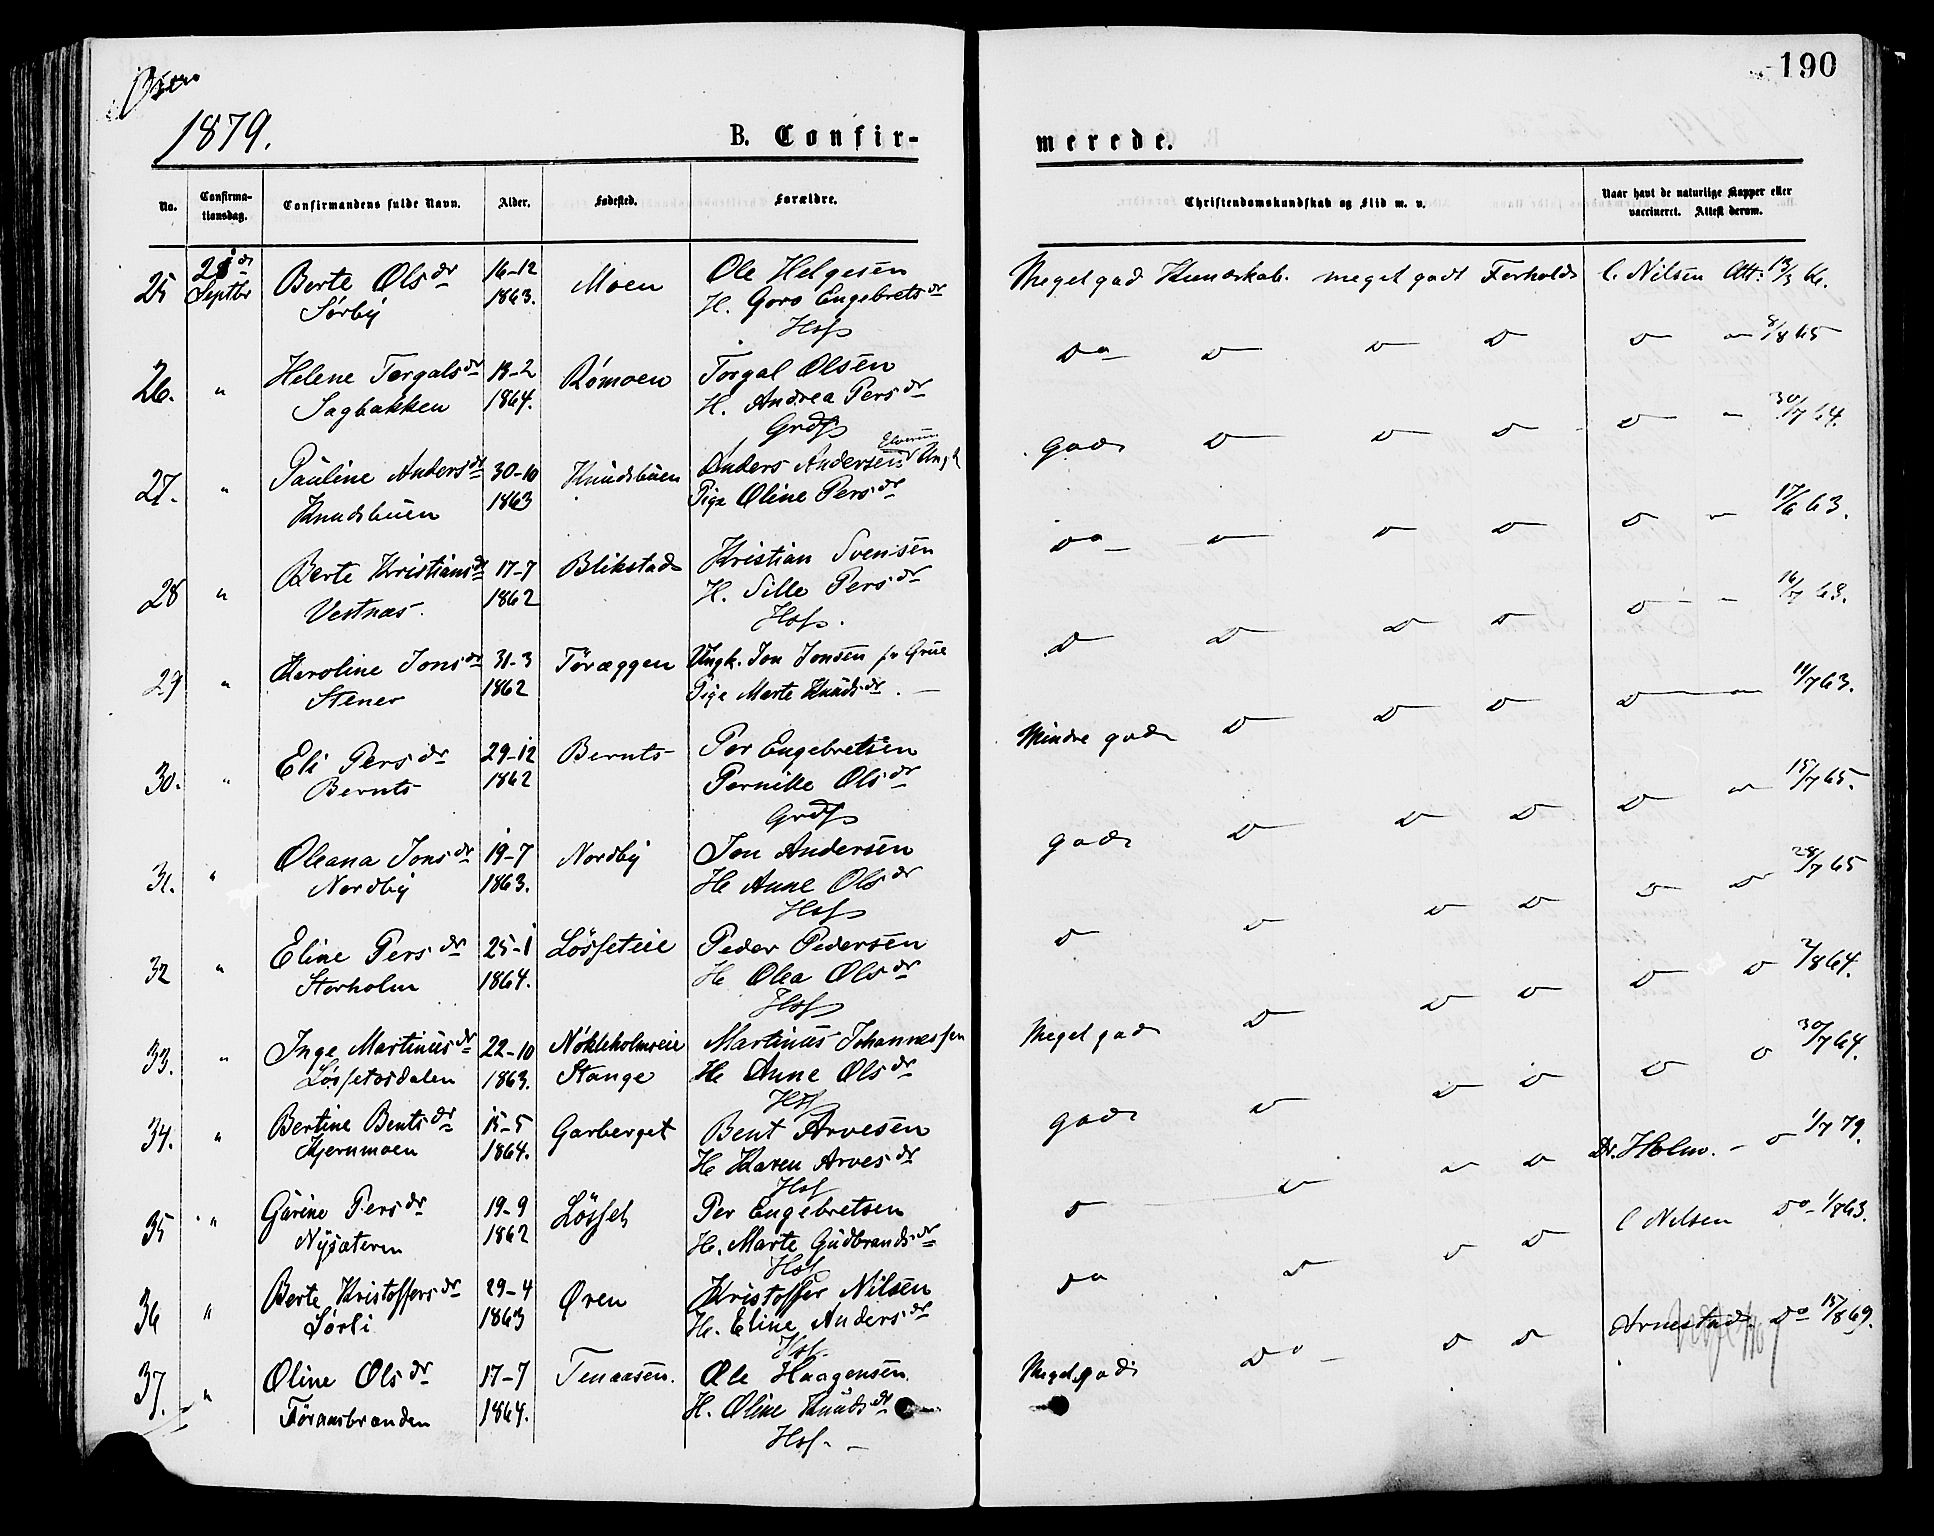 190
Øsen
1879.
B. Confir-
merede.
No.
Confirma-
tionsdag.
Confirmandens fulde Navn.
Alder.
Fødested.
Forældre.
Christendomskundskab og Flid m. v.
Naar havt de naturlige Kopper eller
vaccineret. Attest derom.
25 28de Septbr Berte Olsdr 16-12 Moen Ole Helgesen Meget god Kundskab. meget godt Forhold C. Nilsen Att: 13/3 66.
Sørby 1863. H. Goro Engebretsdr
Hof
26. " Helene Torgalsdr 18-2 Rømoen Torgal Olsen Do D D D D " 8/8 65
Sagbakken 1864. H. Andrea Persdr
Grdf
27. " Pauline Andersdr 30-10 Knudsbuen Anders Andersen Elverum Ungk god D D D D " 30/7 64.
Knudsbuen 1863 Pige Oline Persdr
28 " Berte Kristiansdr 17-7 Blikstad Kristian Svensen Do D D D D " 17/6 63.
Vestnæs. 1862 H. Sille Persdr
Hof.
29 " Karoline Jonsdr 31-3 Töræggen Ungk. Jon Jonsen fr Grue D D D D D " 16/7 63.
Stener 1862 Pige Marte Knudsdr.
30. " Eli Persdr 29-12 Bernts Per Engebretsen Mindre god D D D D " 11/7 63.
Bernts 1862 Pernille Olsdr
Grdf
31. " Oleana Jonsdr 19-7 Nordby Jon Andersen god D D D D " 15/7 65.
Nordby 1863. H Anne Olsdr
Hof
32 " Eline Persdr 25-1 Lösseteie Peder Pedersen D D D D D D 28/7 65
Storholm 1864. H Olea Olsdr
Hof
33. " Inge Martinusdr 22-10 Nökleholmseie Martinus Johannessen Meget god D D D D D 2/8 64.
Løssetesdalen 1863. Stange H Anne Olsdr
Hof
34. " Bertine Bentsdr 15-5 Garberget Bent Arvesen god D D D D D 30/7 64.
Kjernmoen 1864. H Karen Arvesdr
Hof
35 " Gurine Persdr 19-9 Lösset Per Engebretsen D D D D Dr. Holm. - D 1/7 79.
Nysæteren 1862 H. Marte Gudbrandsdr
Hof
36 " Berte Kristoffersdr 29-4 Øren Kristoffer Nilsen Do D D D C Nilsen Do 1/8 63.
Sørli 1863 H. Eline Andersdr
Hof
37. " Oline Olsdr 17-7 Tenaasen. Ole Haagensen. Meget god Do D D Arnestad. Do 15/8 69.
Töraasbranden 1864. H. Oline Knudsdr
Hof.